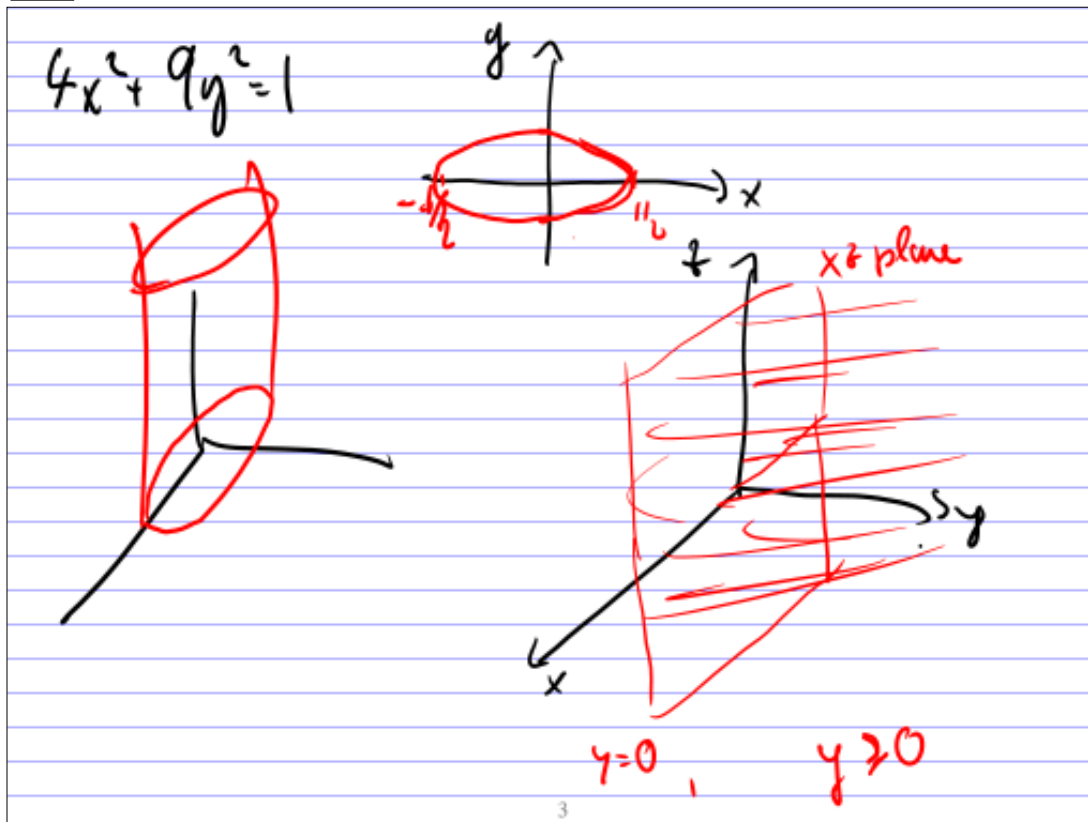 4x²+ 9y²=1
y
x
-1/2
1/2
z
xz plane
y
x
y=0 , y≥0
3